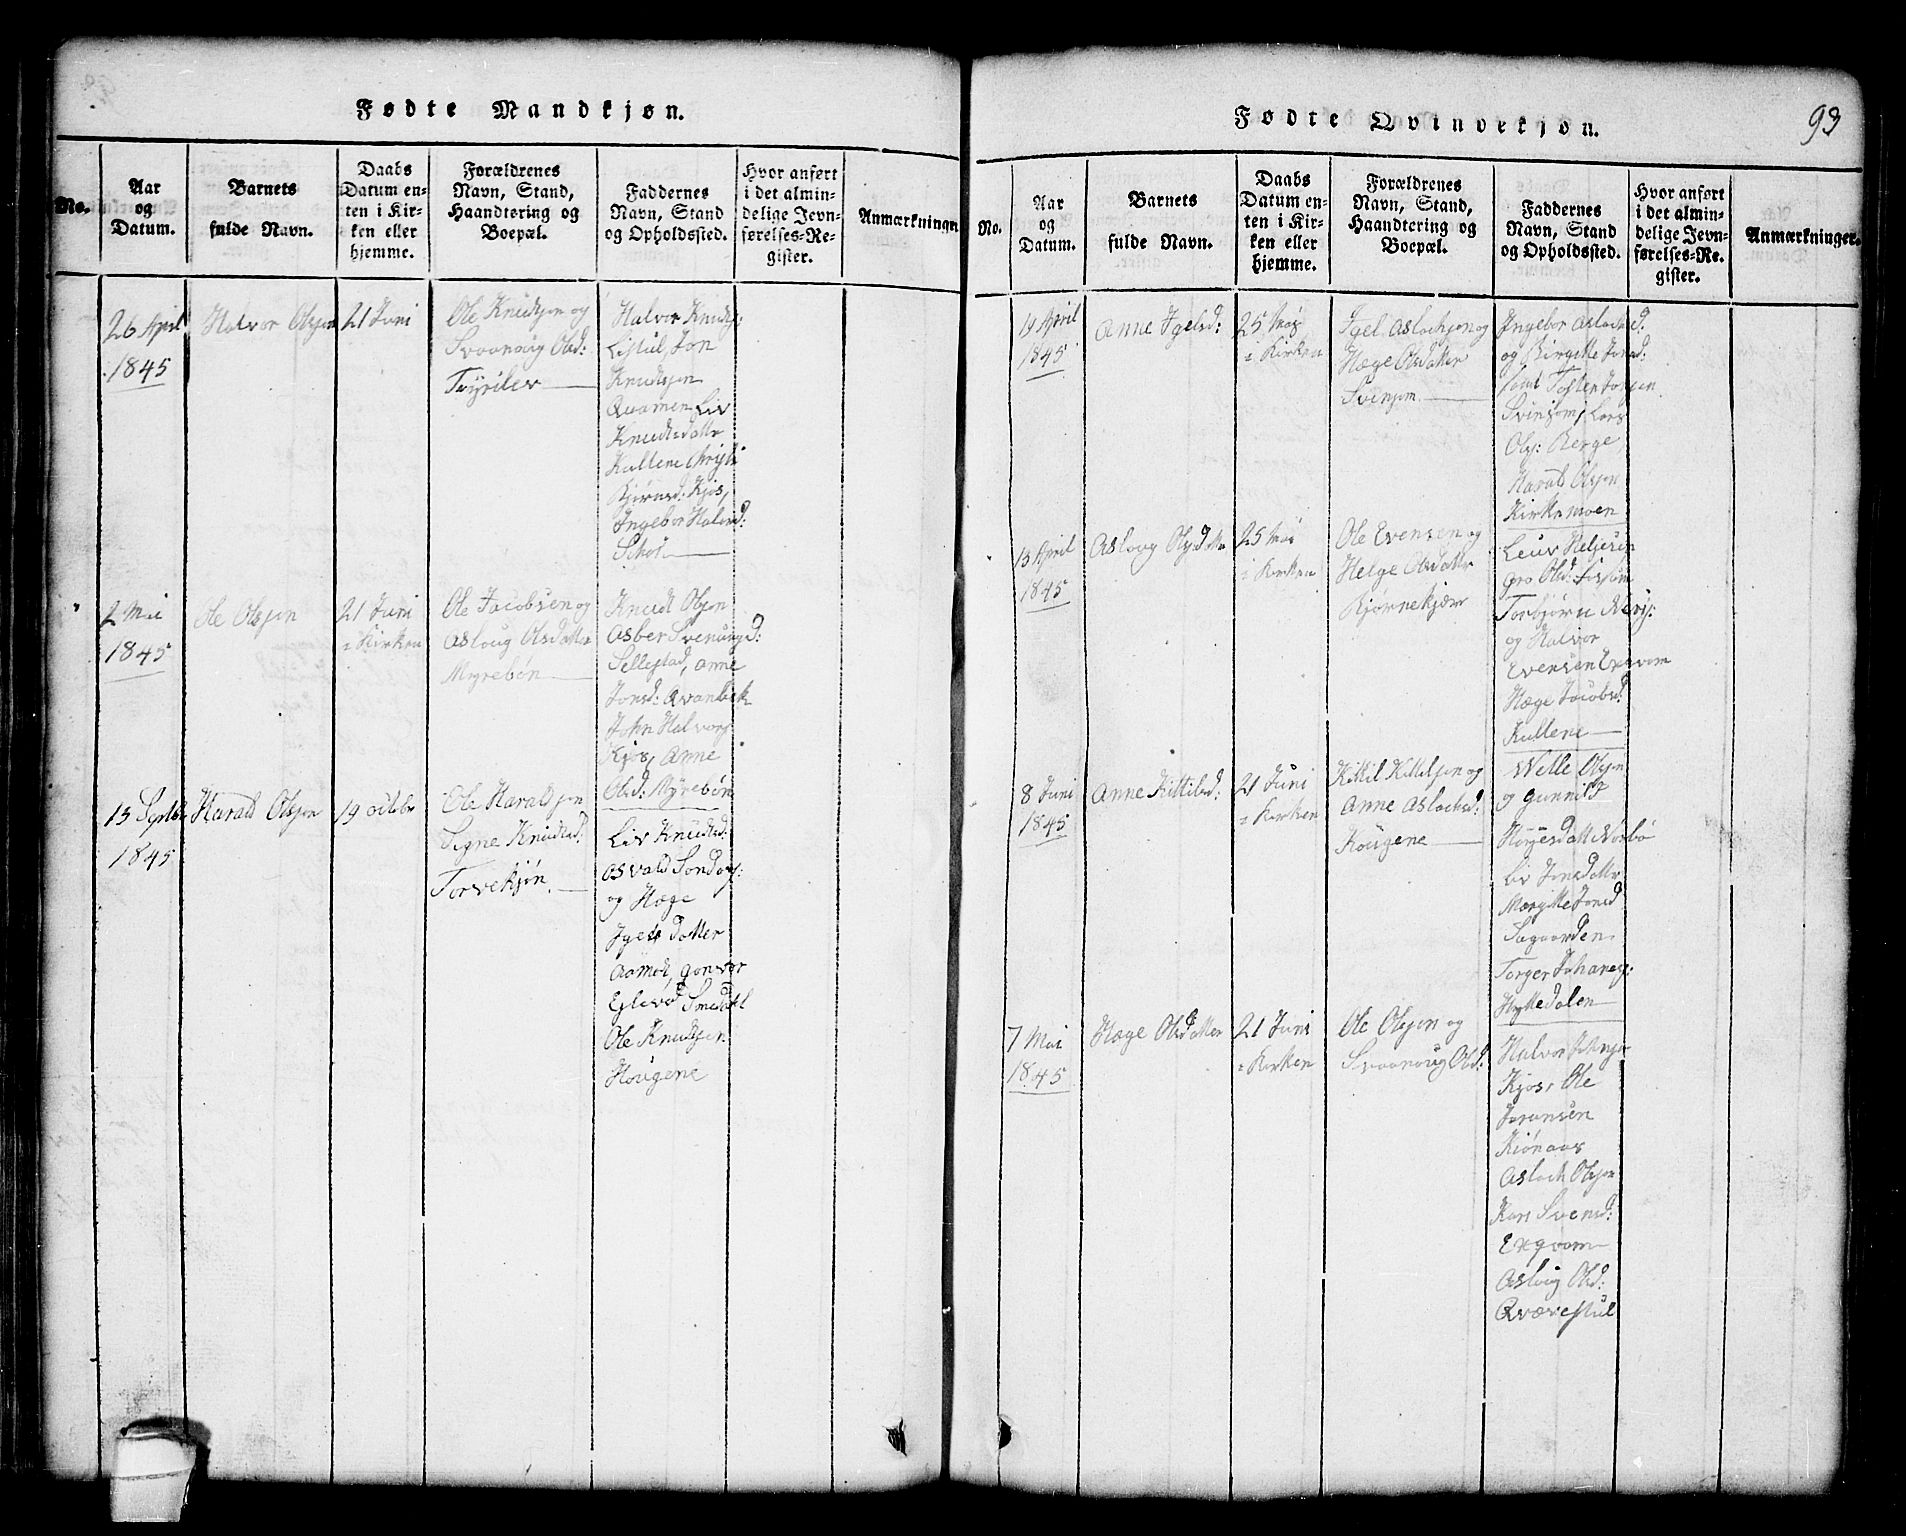 Fødte Mandkjøn.
No.
Aar
og
Datum.
Barnets
fulde Navn.
Daabs
Datum en-
ten i Kir-
ken eller
hjemme.
Forældrenes
Navn, Stand,
Haandtering og
Boepæl.
Faddernes
Navn, Stand
og Opholdssted.
Hvor anført
i det almin-
delige Jevn-
førelses-Re-
gister.
Anmærkninger
26 April
1845
Halvor Olsen
21 Juni
Ole Knudsen og
Svaanoug Olsd:
Tvyrilev
Halvor Knuds:
Listul, Jon
Knudsen
Quamen Liv
Knudsdattr
Kullene
Bjørnsd: Kjos,
Ingebor Halvd:
2 Mai
1845
Ole Olsen
21 Juni
i Kirken
Ole Jacobsen og
Aslaug Olsdatter
Myrebøn
Knudt Olsen
Asber Svenungd:
Sellestad, Anne
Jonsd: Qvanbek
John Halvors
Kjos, Anne
Olsd: Myrebøn
15 Septb
1845
Harald Olsen
19 Octobr
Ole Haraldsen
Signe Knudsd:
Torvekjøn
Liv Knudsd:
Osvald
og Hæge
Igelsdatter
Aamot, Gonvor
Ole Knudsen
Hougene
Fødte Qvindekjøn.
93
No.
Aar
og
Datum.
Barnets
fulde Navn.
Daabs
Datum en-
ten i Kir-
ken eller
hjemme.
Forældrenes
Navn, Stand,
Haandtering og
Boepæl.
Faddernes
Navn, Stand
og Opholdssted.
Hvor anført
i det almin-
delige Jevn-
førelses-Re-
gister.
Anmærkninger.
19 April
1845
Anne Igelsd:
25 Mai
i Kirken
Igel Aslachsen og
Hæge Olsdatter
Svinsom
Ingebor Aslachsd:
og Birgitte Jonsd:
samt Tosten Jonsen
Svinsom, Lars
Ols: Berge,
Harald Olsen
Kirkemoen
13 April
1845
Aslaug Olsdatter
25 Mai
i Kirken
Ole Evensen og
Helge Olsdattr
Bjørnekjær
Gro Olsd:
Torbjørn
og Halvor
Evensen Exqvam
Hæge Jacobsd:
Kullene
8 Juni
1845
Anne Kittilsd:
21 Juni
i Kirken
Kittil Kittilsen og
Anne Aslachsd:
Hougene
Olsen
og Gunnild
Liv Jonsdattr
Jonsd
Torger Johanes:
Hyttedalen
7 Mai
1845
Hæge Olsdatter
21 Juni
i Kirken
Ole Olsen og
Svaanoug Olsd:
Halvor Johnsen
Kjos, Ole
Joransen
Kiønaas
Aslach Olsen
Kari Svensd:
Exqvam
Aslaug Olsd:
Qværestul